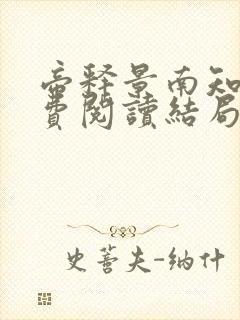 帝释景南知
費閱讀結局
史蒈夫-纳什